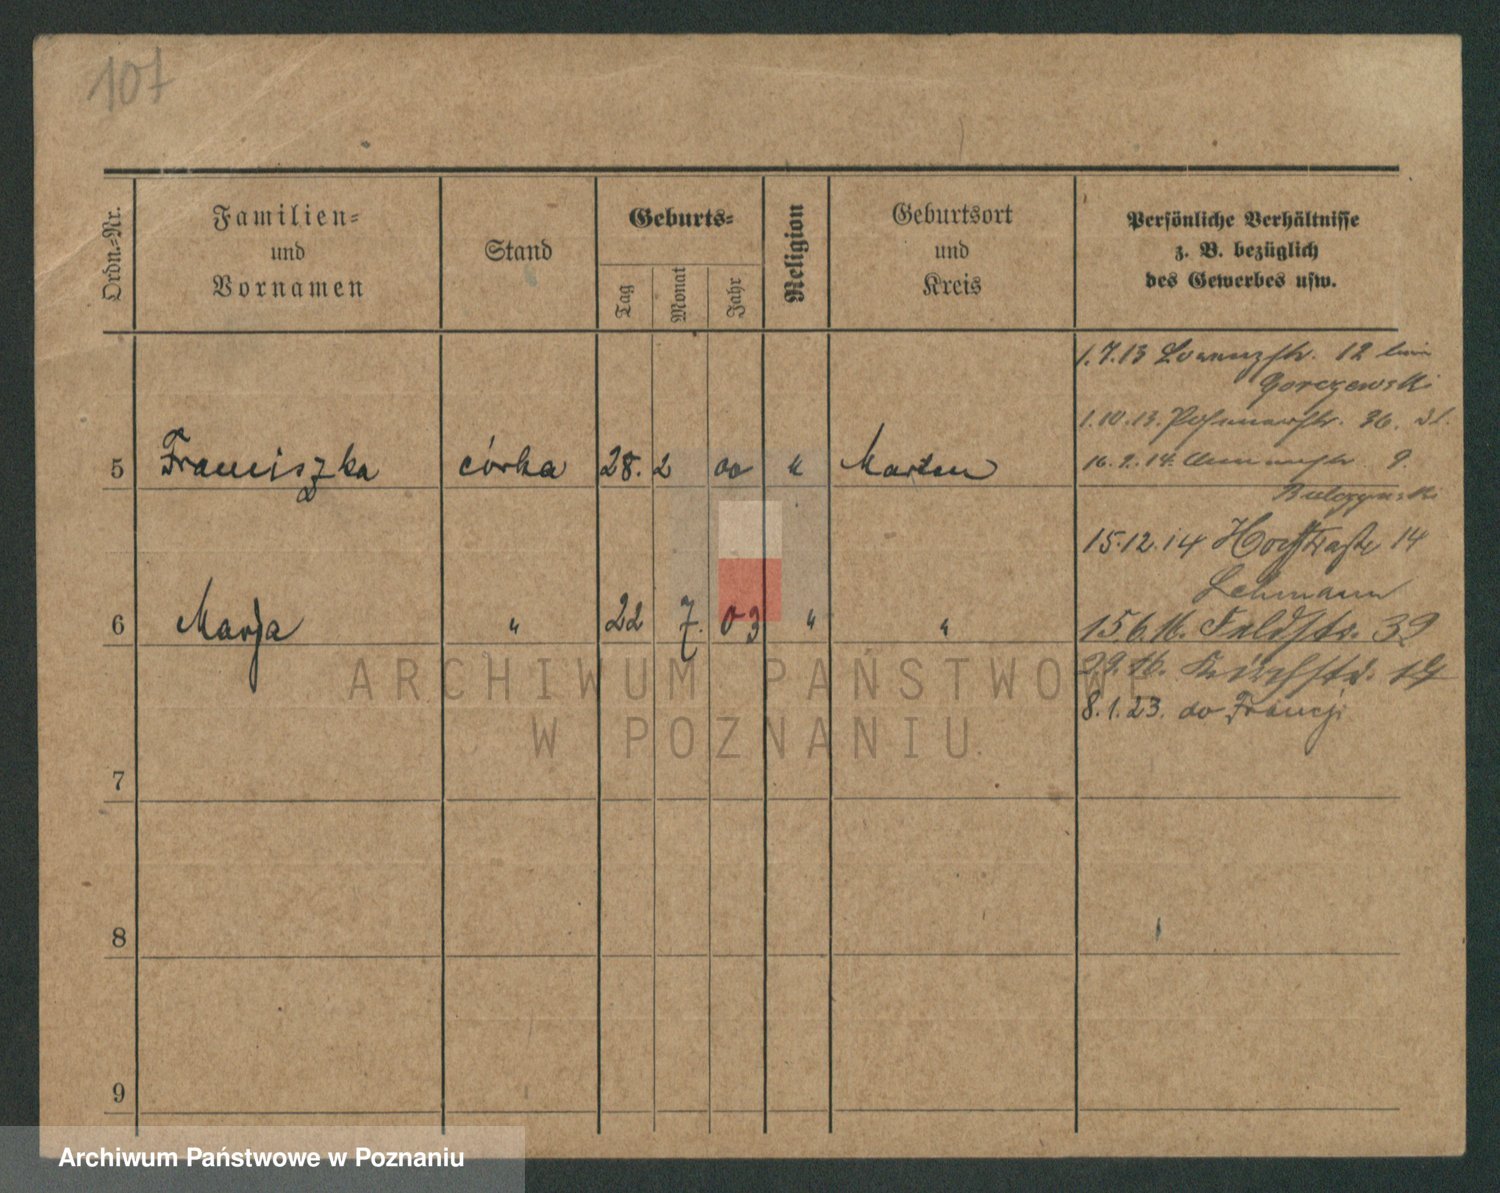 107
Ordn.-Nr.
Familien-
und
Vornamen
Stand
Geburts-
Tag
Monat
Jahr
Religion
Geburtsort
und
Kreis
Persönliche Verhältnisse
z. B. bezüglich
des Gewerbes usw.
1.7.13 12
Gorczewski
1.10.13. 36.
5 Franciszka córka 28. 2 00 " Marten 16.9.14. 9.
15.12.14 Hochstraße 14
Lehmann
6 Marja " 22 7. 03 " " 15.6.16. Feldstr. 39
Kirchstr.
8.1.23. do Francji
7
8
9
ARCHIWUM PAŃSTWOWE
W POZNANIU
Archiwum Państwowe w Poznaniu